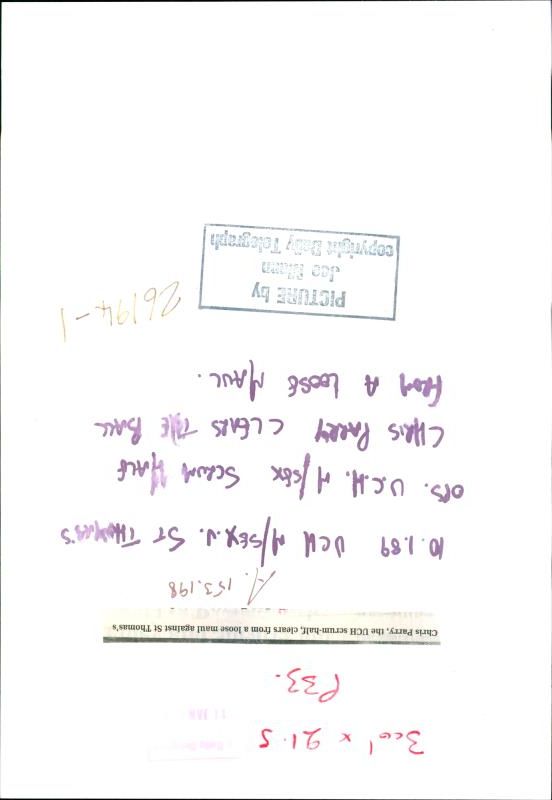 3col x 21.5
P33.
Chris Parry, the UCH scrum-half, clears from a loose maul against St Thomas's
A. 153.198
10.1.89 UCH M/SEX. V. ST THOMAS'S
OPS. U.C.H. M/SEX SCRUM HALF
CHRIS PARRY CLEARS THE BALL
FROM A LOOSE MAUL.
26194-1
PICTURE by
Joe Mann
copyright Daily Telegraph